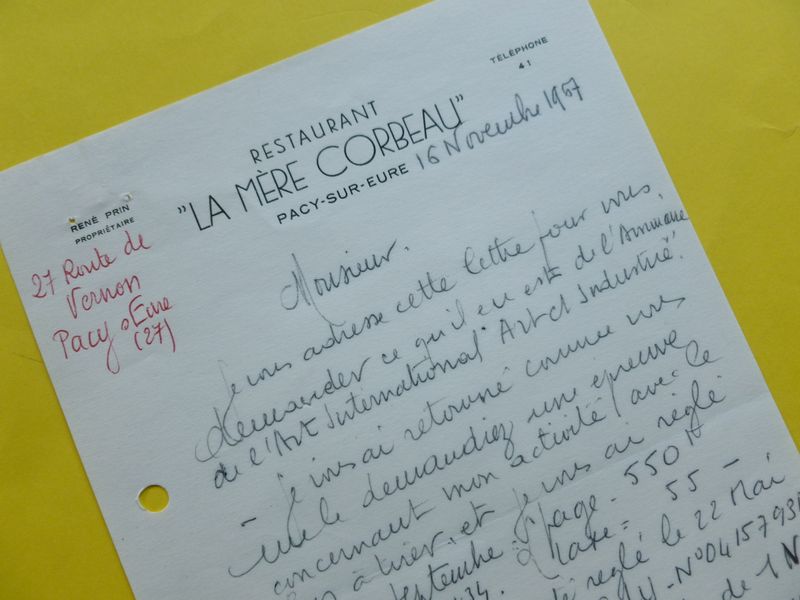 TÉLÉPHONE
41
RESTAURANT
"LA MÈRE CORBEAU"
PACY-SUR-EURE 16 Novembre 1957
RENÉ PRIN
PROPRIÉTAIRE
27 Route de
Vernon
Pacy s Eure
(27)
Monsieur.
Je vous adresse cette lettre pour vous
demander ce qu'il en est de l'Annuaire
de l'Art International "Art et Industrie".
- Je vous ai retourné comme vous
me le demandiez une épreuve
concernant mon activité, avec le
à tirer, et je vous ai réglé
septembre: page - 550 F
taxe = 55 -
34. réglé le 22 Mai
N° 0415793
de 1 N